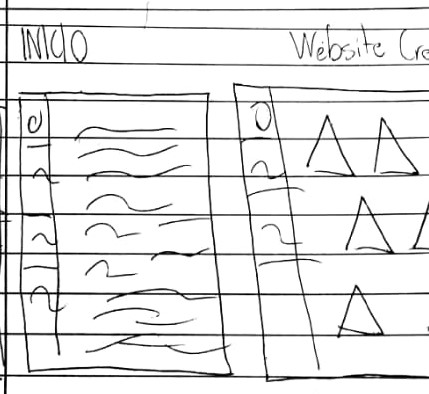 INICIO
Website Cre